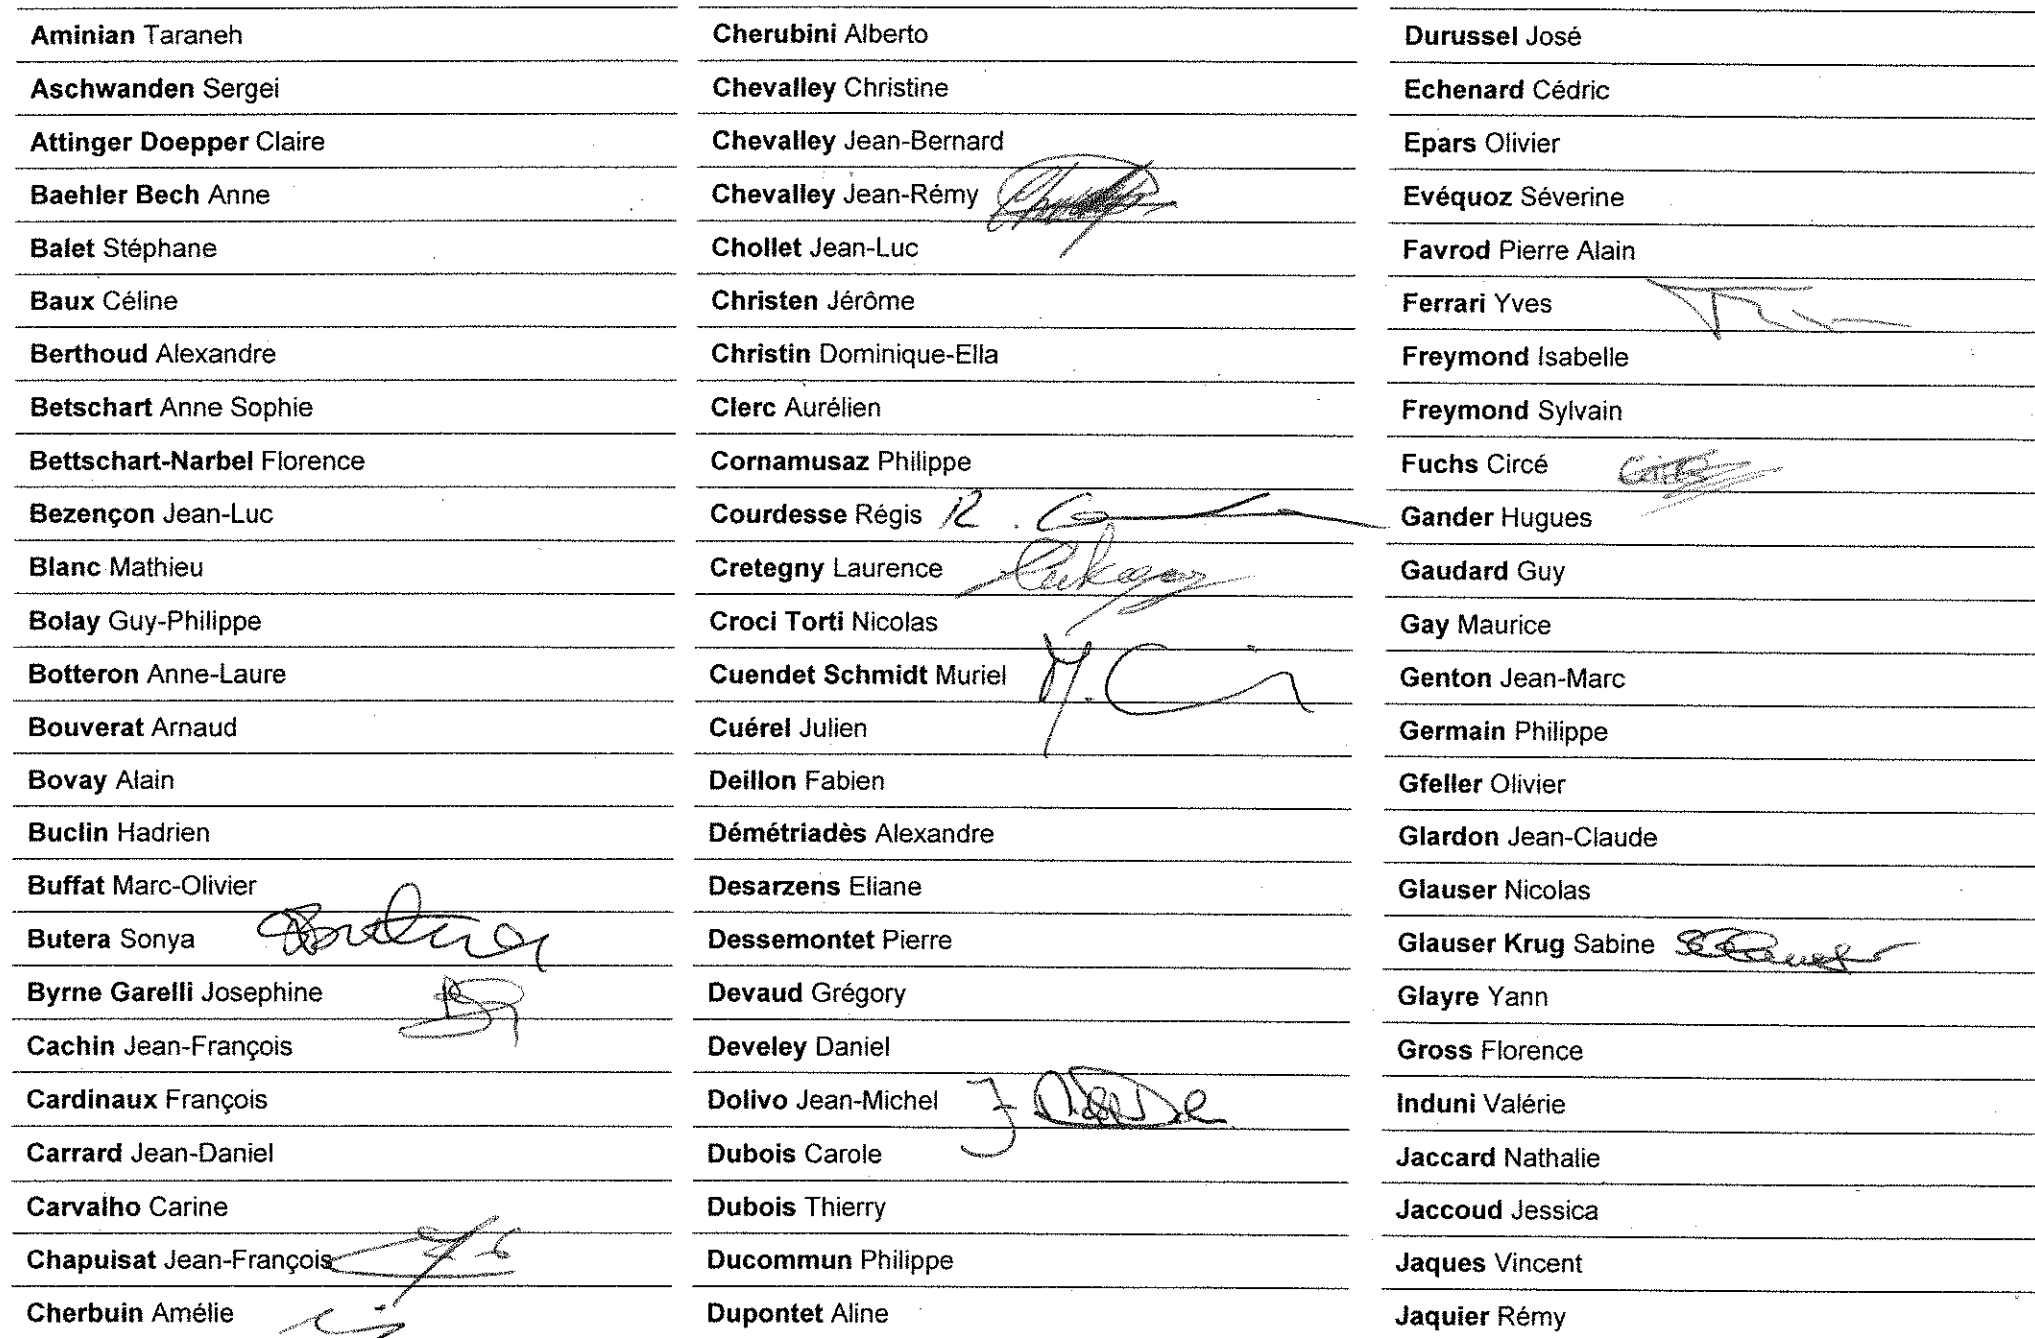 Aminian Taraneh
Aschwanden Sergei
Attinger Doepper Claire
Baehler Bech Anne
Balet Stéphane
Baux Céline
Berthoud Alexandre
Betschart Anne Sophie
Bettschart-Narbel Florence
Bezençon Jean-Luc
Blanc Mathieu
Bolay Guy-Philippe
Botteron Anne-Laure
Bouverat Arnaud
Bovay Alain
Buclin Hadrien
Buffat Marc-Olivier
Butera Sonya
Byrne Garelli Josephine
Cachin Jean-François
Cardinaux François
Carrard Jean-Daniel
Carvalho Carine
Chapuisat Jean-François
Cherbuin Amélie
Cherubini Alberto
Chevalley Christine
Chevalley Jean-Bernard
Chevalley Jean-Rémy
Chollet Jean-Luc
Christen Jérôme
Christin Dominique-Ella
Clerc Aurélien
Cornamusaz Philippe
Courdesse Régis R.
Cretegny Laurence
Croci Torti Nicolas
Cuendet Schmidt Muriel M.
Cuérel Julien
Deillon Fabien
Démétriadès Alexandre
Desarzens Eliane
Dessemontet Pierre
Devaud Grégory
Develey Daniel
Dolivo Jean-Michel
Dubois Carole
Dubois Thierry
Ducommun Philippe
Dupontet Aline
Durussel José
Echenard Cédric
Epars Olivier
Evéquoz Séverine
Favrod Pierre Alain
Ferrari Yves
Freymond Isabelle
Freymond Sylvain
Fuchs Circé
Gander Hugues
Gaudard Guy
Gay Maurice
Genton Jean-Marc
Germain Philippe
Gfeller Olivier
Glardon Jean-Claude
Glauser Nicolas
Glauser Krug Sabine
Glayre Yann
Gross Florence
Induni Valérie
Jaccard Nathalie
Jaccoud Jessica
Jaques Vincent
Jaquier Rémy